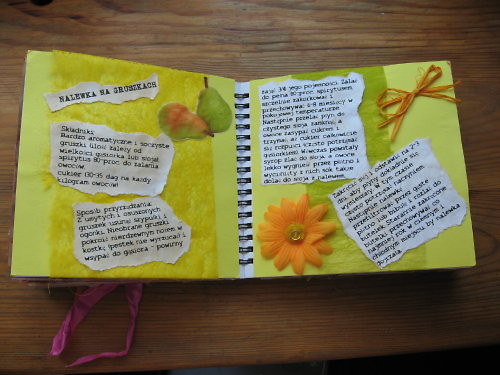 NALEWKA NA GRUSZKACH
Składniki:
Bardzo aromatyczne i soczyste
gruszki (ilość zależy od
wielkości gąsiorka lub słoja)
spirytus 80-proc do zalania
owoców
cukier (30-35 dag na każdy
kilogram owoców)
Sposób przyrządzania:
Z umytych i osuszonych
gruszek usunąć szypułki i
ogonki. Nieobrane gruszki
pokroić nierdzewnym nożem w
kostkę (pestek nie wyrzucać) i
wsypać do gąsiora - powinny
zająć 3/4 jego pojemności. Zalać
do pełna 80-proc. spirytusem,
szczelnie zakorkować i
przechowywać 6-8 miesięcy w
pokojowej temperaturze.
Następnie przelać płyn do
czystego słoja zamknąć a
owoce zasypać cukrem i
trzymać, aż cukier całkowicie
się rozpuści (często potrząsać
gąsiorkiem). Wówczas powstały
syrop zlać do słoja, a owoce
lekko wygnieść przez płótno i
wyciśnięty z nich sok także
dolać do słoja z nalewem.
Zakręcić słój i odstawić na 2-3
dni, aby płyny dokładnie się
wymieszały, w tym czasie
często potrząsać naczyniem.
Następnie nalewkę
przefiltrować przez gęste
płótno lub bibułę i rozlać do
butelek. Starannie zakręcone
butelki przechowywać co
najmniej rok w ciemnym i
chłodnym miejscu by nalewka
dojrzała.